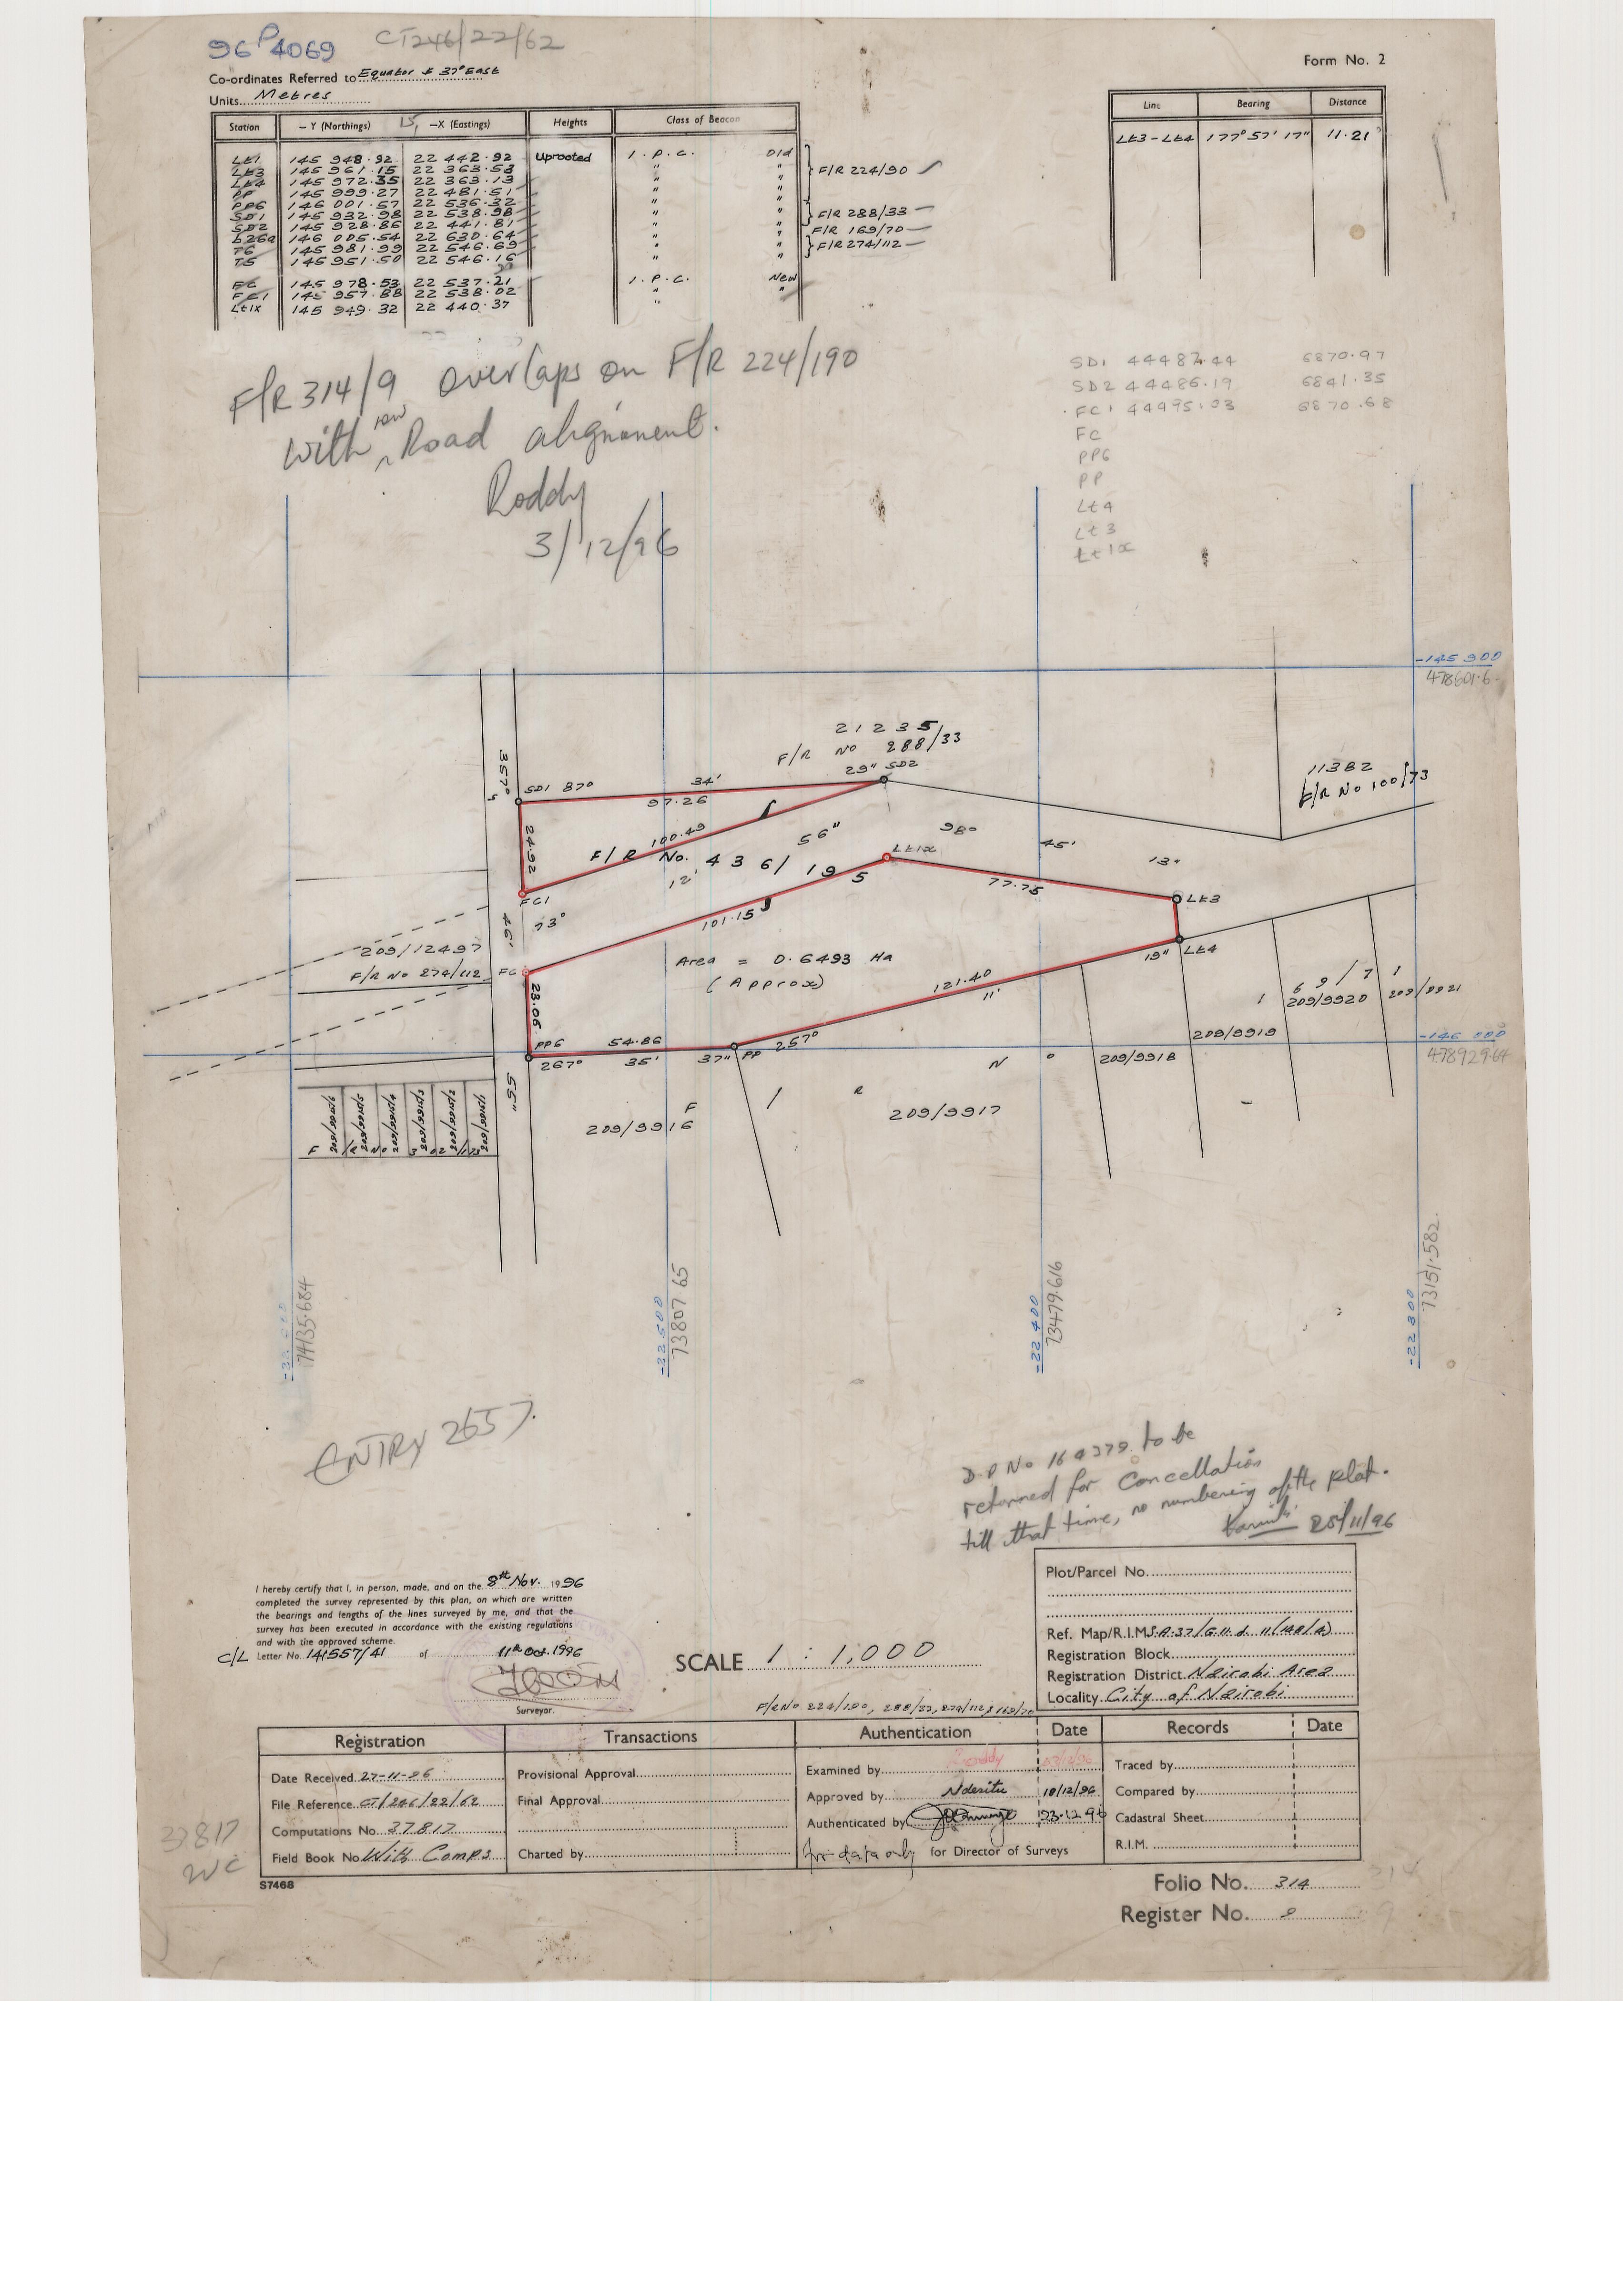 96P4069 CT246/22/62
Form No. 2
Co-ordinates Referred to Equator & 37° East
Units Metres
Station – Y (Northings) –X (Eastings) Heights Class of Beacon
Lt1 145 948.92 22 442.92 Uprooted I.P.C. Old
Lt3 145 961.15 22 363.53 " "
Lt4 145 972.35 22 363.13 " "
F/R 224/90
PP 145 999.27 22 481.51 " "
PP6 146 001.57 22 536.32 " "
SD1 145 932.98 22 538.98 " "
SD2 145 928.86 22 441.81 " "
F/R 288/33
b26a 146 005.54 22 630.64 " "
F/R 169/70
T6 145 981.99 22 546.69 " "
T5 145 951.50 22 546.16 " "
F/R 274/112
FC 145 978.53 22 537.21 I.P.C. New
FC1 145 957.88 22 538.02 " "
Lt1x 145 949.32 22 440.37 "
Line Bearing Distance
Lt3-Lt4 177° 57' 17" 11.21
F/R 314/9 overlaps on F/R 224/190
with new Road alignment.
Roddy
3/12/96
SD1 44487.44 6870.97
SD2 44486.19 6841.35
FC1 44495.03 6870.68
FC
PP6
PP
Lt4
Lt3
Lt1x
-145 900
478601.6
21235
F/R No 288/33
SD1 87° 34' 29" SD2
97.26
11382
F/R No 100/73
357°
24.92
100.49
F/R No. 436/195
12' 56"
Lt1x 98° 45' 13"
77.75
Lt3
FC1
46' 73°
101.15
209/12497
F/R No 274/112
FC
Area = 0.6493 Ha
(Approx)
19" Lt4
121.40
11'
23.06
PP6 54.86
267° 35' 37" PP 257°
-146 000
478929.64
55"
F/R No 169/71
209/9916
209/9917
209/9918
209/9919
209/9920
209/9921
-22 600
74135.684
-22 500
73807 65
-22 400
73479.616
-22 300
73151.582
ENTRY 2657.
D.P No 164379 to be
returned for Concellation
till that time, no numbering of the plot.
Kariuki 25/11/96
I hereby certify that I, in person, made, and on the 8th Nov. 1996
completed the survey represented by this plan, on which are written
the bearings and lengths of the lines surveyed by me, and that the
survey has been executed in accordance with the existing regulations
and with the approved scheme.
C/L Letter No. 141557/41 of 11th Oct. 1996
Surveyor.
SCALE 1 : 1,000
Plot/Parcel No.
Ref. Map/R.I.M S.A.37/G.11.d. 11(148/4)
Registration Block
Registration District Nairobi Area
Locality City of Nairobi
F/R No 224/190, 288/33, 274/112 & 169/70
Registration Transactions Authentication Date Records Date
Date Received 27-11-96
File Reference CT/246/22/62
Computations No. 37817
Field Book No With Comps
Provisional Approval
Final Approval
Charted by
Examined by Roddy
Approved by Nderitu 10/12/96
Authenticated by 23.12.96
for data only for Director of Surveys
Traced by
Compared by
Cadastral Sheet
R.I.M.
37817
WC
S7468
Folio No. 314
Register No. 9